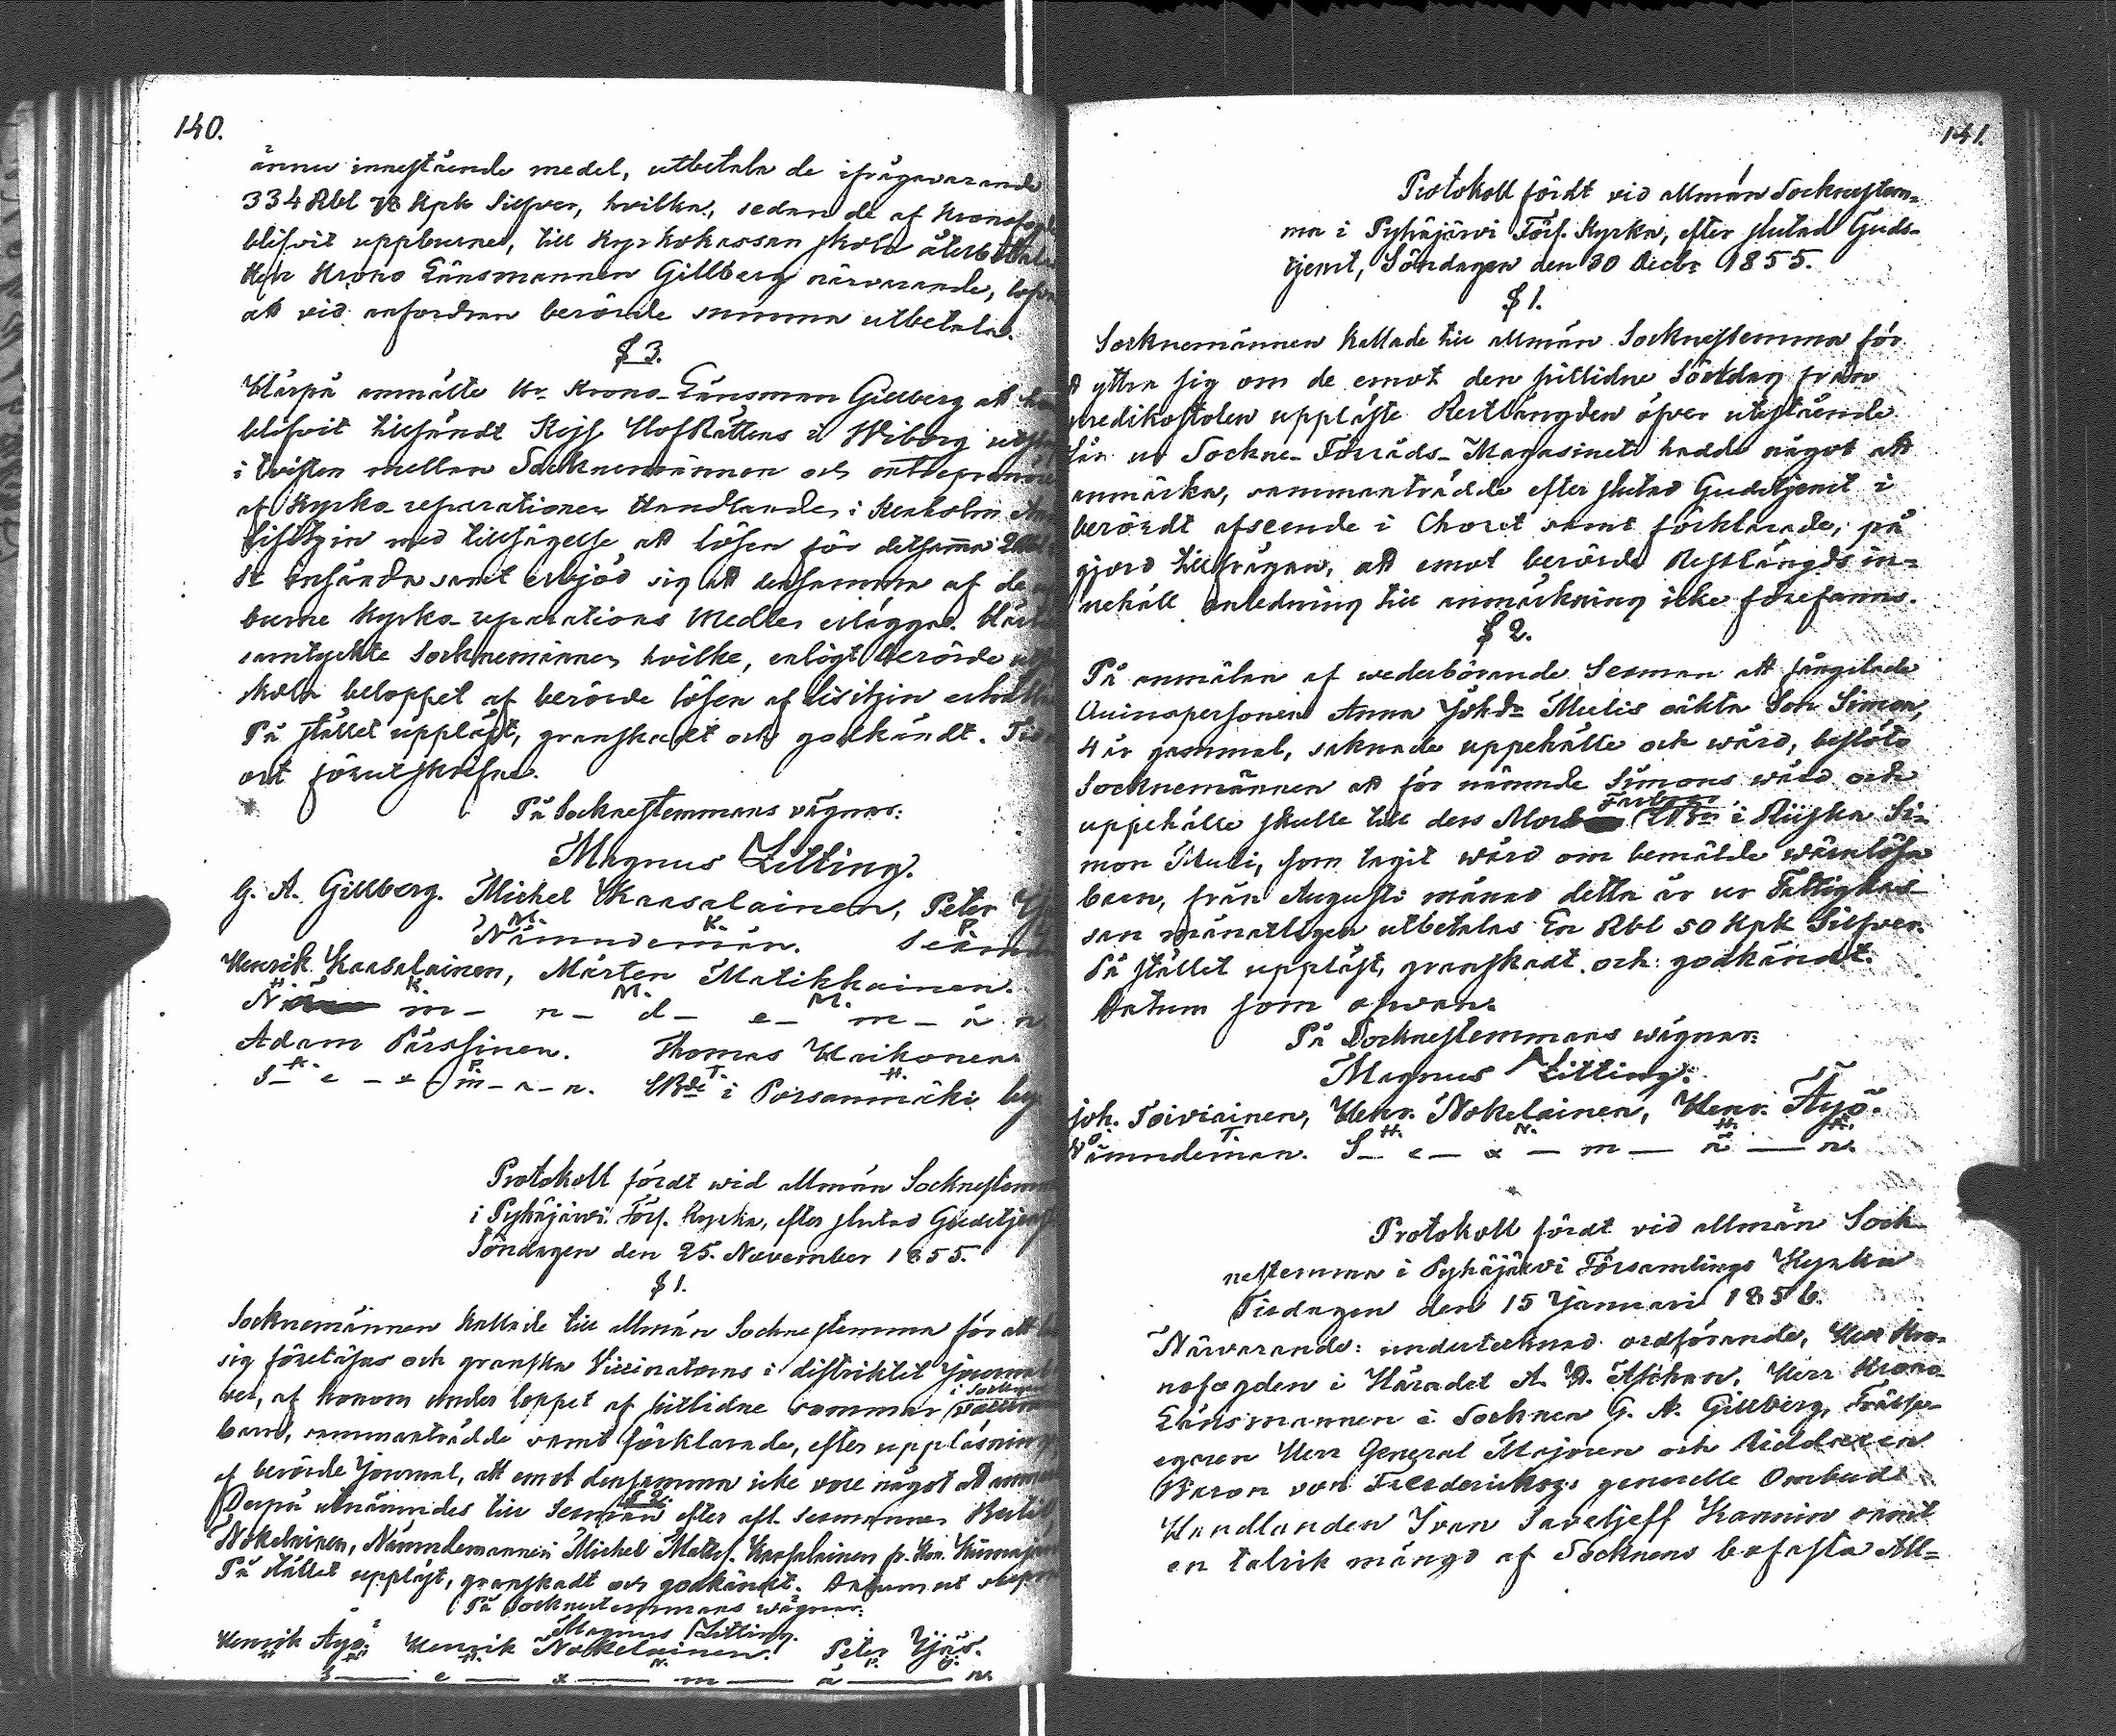 140.
ännu innestående medel, utbetala de ifrågavarande
334 Rbl Kpk Silfver, hvilka, sedan de af Kronofogde
blifvit uppburne, till Kyrkokassan skola återbetalas
Herr Krono Länsmannen Gillberg närvarande, lofva
att vid anfordran berörde summa utbetala.
§ 3.
Härpå anmälte Hr Krono-Länsman Gillberg att
blifvit tillsändt Kejs. HofRättens i Wiborg
i tvisten mellan Socknemännen och
af Kyrko reparationen Handlanden i Kexholm
Lisitzin med tillsägelse att lösen för detsamma
insända samt erbjöd sig att densamma af de
burne Kyrko-reparations Medlen erlägga.
samtyckte Socknemännen hvilke, enligt berörde
skola beloppet af berörde lösen af Lisitzin
På stället uppläst, granskadt och godkändt.
ort förutskrefne.
På Socknestemmans vägnar:
Magnus Zitting.
G. A. Gillberg. Michel Kaasalainen, Peter
M. K. P.
Nämndemän.
Henrik Kaasalainen, Mårten Matikkainen.
H. K. M. M.
N m - n - d - e - m - ä n
Adam Pärssinen. Thomas Kaikonen
A. P. T. H.
S - e - x - m - a - n. i Porsanmäki by
Protokoll fördt wid allmän
i Pyhäjärvi Förs. Kyrka, efter slutad
Söndagen den 25. November 1855.
§ 1.
Socknemännen kallade till allmän Socknestemma för att
sig föreläsas och granska Vaccinatorns i distriktet
ver, af honom under loppet af sistlidne sommar i Socknen
barn, sammanträdde samt förklarade, efter uppläsning
af berörde Journal, att emot densamma icke vore något att
§ 2.
Derpå utnämndes till Sexman efter afl. sexmannen
Nokelainen, Nämndemannen Michel Matss. Kaasalainen
På stället uppläst, granskadt och godkändt. Datum ut
På Socknestemmans wägnar:
Magnus Zitting.
Henrik Äyö. Henrik Nokelainen. Peter Yjäs.
S - e - x - m - ä - n.
141.
Protokoll fördt vid allmän Socknestem-
ma i Pyhäjärvi Förs. Kyrka, efter slutad Guds-
tjenst, Söndagen den 30 Decbr 1855.
§ 1.
Socknemännen kallade till allmän Socknestemma för
att yttra sig om de emot den sistlidne Söndag från
predikostolen uppläste Restlängden öfver utestående
lån ur Sockne-Förråds-Magasinet hadde något att
anmärka, sammanträdde efter slutad Gudstjenst i
berördt afseende i Choret samt förklarade, på
gjord tillfrågan, att emot berörde Restlängds in-
nehåll anledning till anmärkning icke förefanns.
§ 2.
På anmälan af wederbörande Sexman att fängslade
Qvinspersonen Anna Johsdr Mulis oäkta Son Simon,
4 år gammal, saknade uppehälle och wård, beslöto
Socknemännen att för nämnde Simons wård och
uppehälle skulle till dess i Riiska Si-
mon Muli, som tagit wård om bemälde wärnlösa
barn, från Augusti månad detta år ur Fattigkas-
san månatligen utbetalas En Rbl 50 Kpk Silfver.
På stället uppläst, granskadt och godkändt.
Datum som ofwan.
På Socknestemmans wägnar:
Magnus Zitting.
Joh. Toiviainen, Henr. Nokelainen, Henr. Äyö.
T. H. N. H.
Nämndeman. S - e - x - m - ä - n.
Protokoll fördt vid allmän Sock-
nestemma i Pyhäjärvi Församlings Kyrka
Tisdagen den 15 Januari 1856.
Närvarande: undertecknad ordförande, Herr Kro-
nofogden i Häradet A. Aschan, Herr Krono-
Länsmannen i Socknen G. A. Gillberg, Frälse-
egaren Herr General Majoren och Riddaren
Baron von Fredericksz: generelle Ombud
Handlanden Ivan Saveljeff Kannin samt
en talrik mängd af Socknens bofasta All-